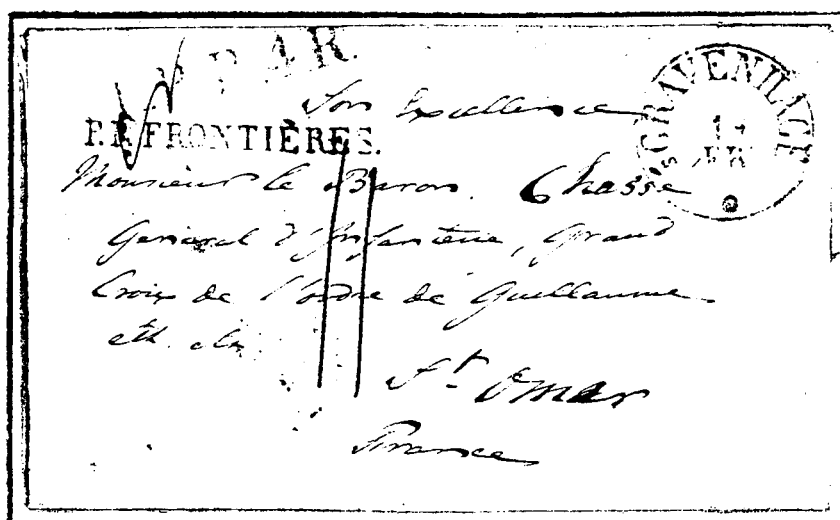 P.P. FRONTIÈRES.
'S GRAVENHAGE
Son Excellence
Monsieur le Baron Chassé
General d'Infanterie, Grand
Croix de l'ordre de Guillaume
St Omer
France